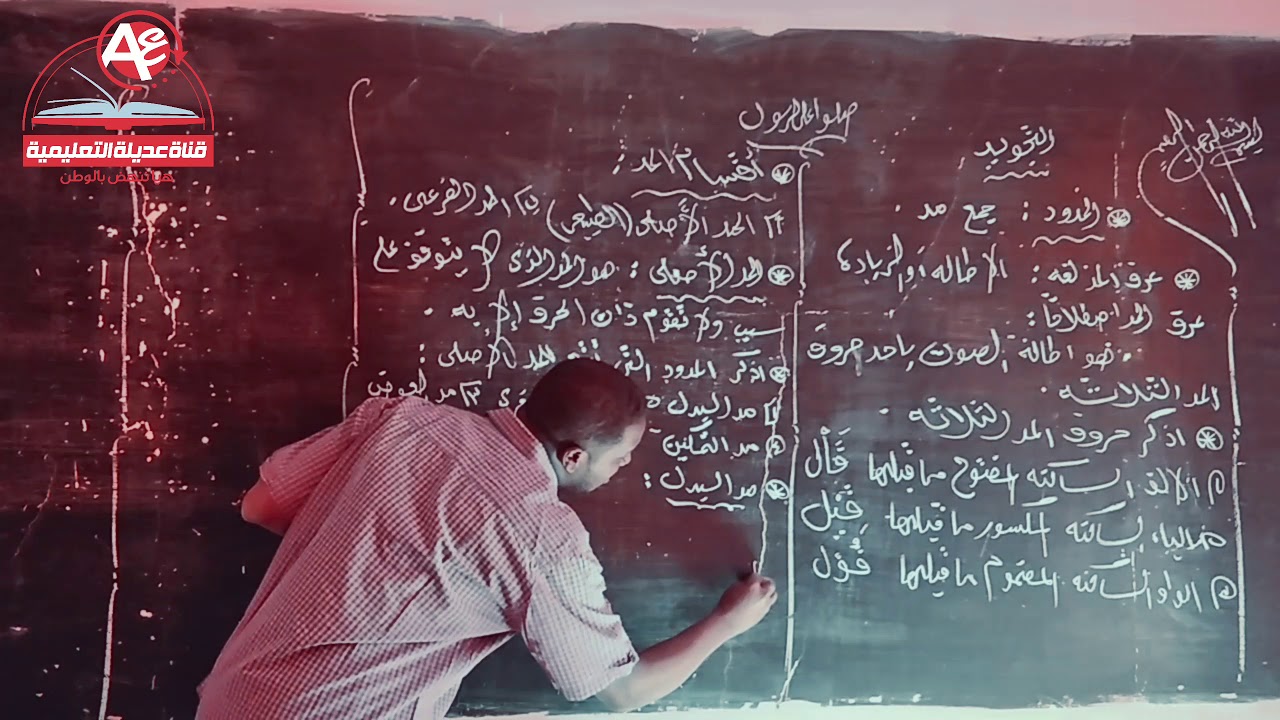 قناة عديلة التعليمية
هيا ننهض بالوطن
بسم الله الرحمن الرحيم
صلوا على الرسول
التجويد
المدود : جمع مد .
عرف المد لغه : الاطاله او الزيادة
عرف المد اصطلاحًا :
. هو اطالة الصوت باحد حروف
المد الثلاثه .
اذكر حروف المد الثلاثه .
١/ الالف الساكنه المفتوح ما قبلها قَال
الياء الساكنه المكسور ما قبلها قِيل
الواو الساكنه المضموم ما قبلها قُول
أقسام المد :
١/ المد الأصلى (الطبيعى) ٢/ المد الفرعى .
المد الأصلى : هو المد الذى لا يتوقف على
سبب ولا تقوم ذات الحرف إلا به .
اذكر المدود المد الأصلى :
مد البدل ٣/ مد العوض
مد التمكين
مد البدل :